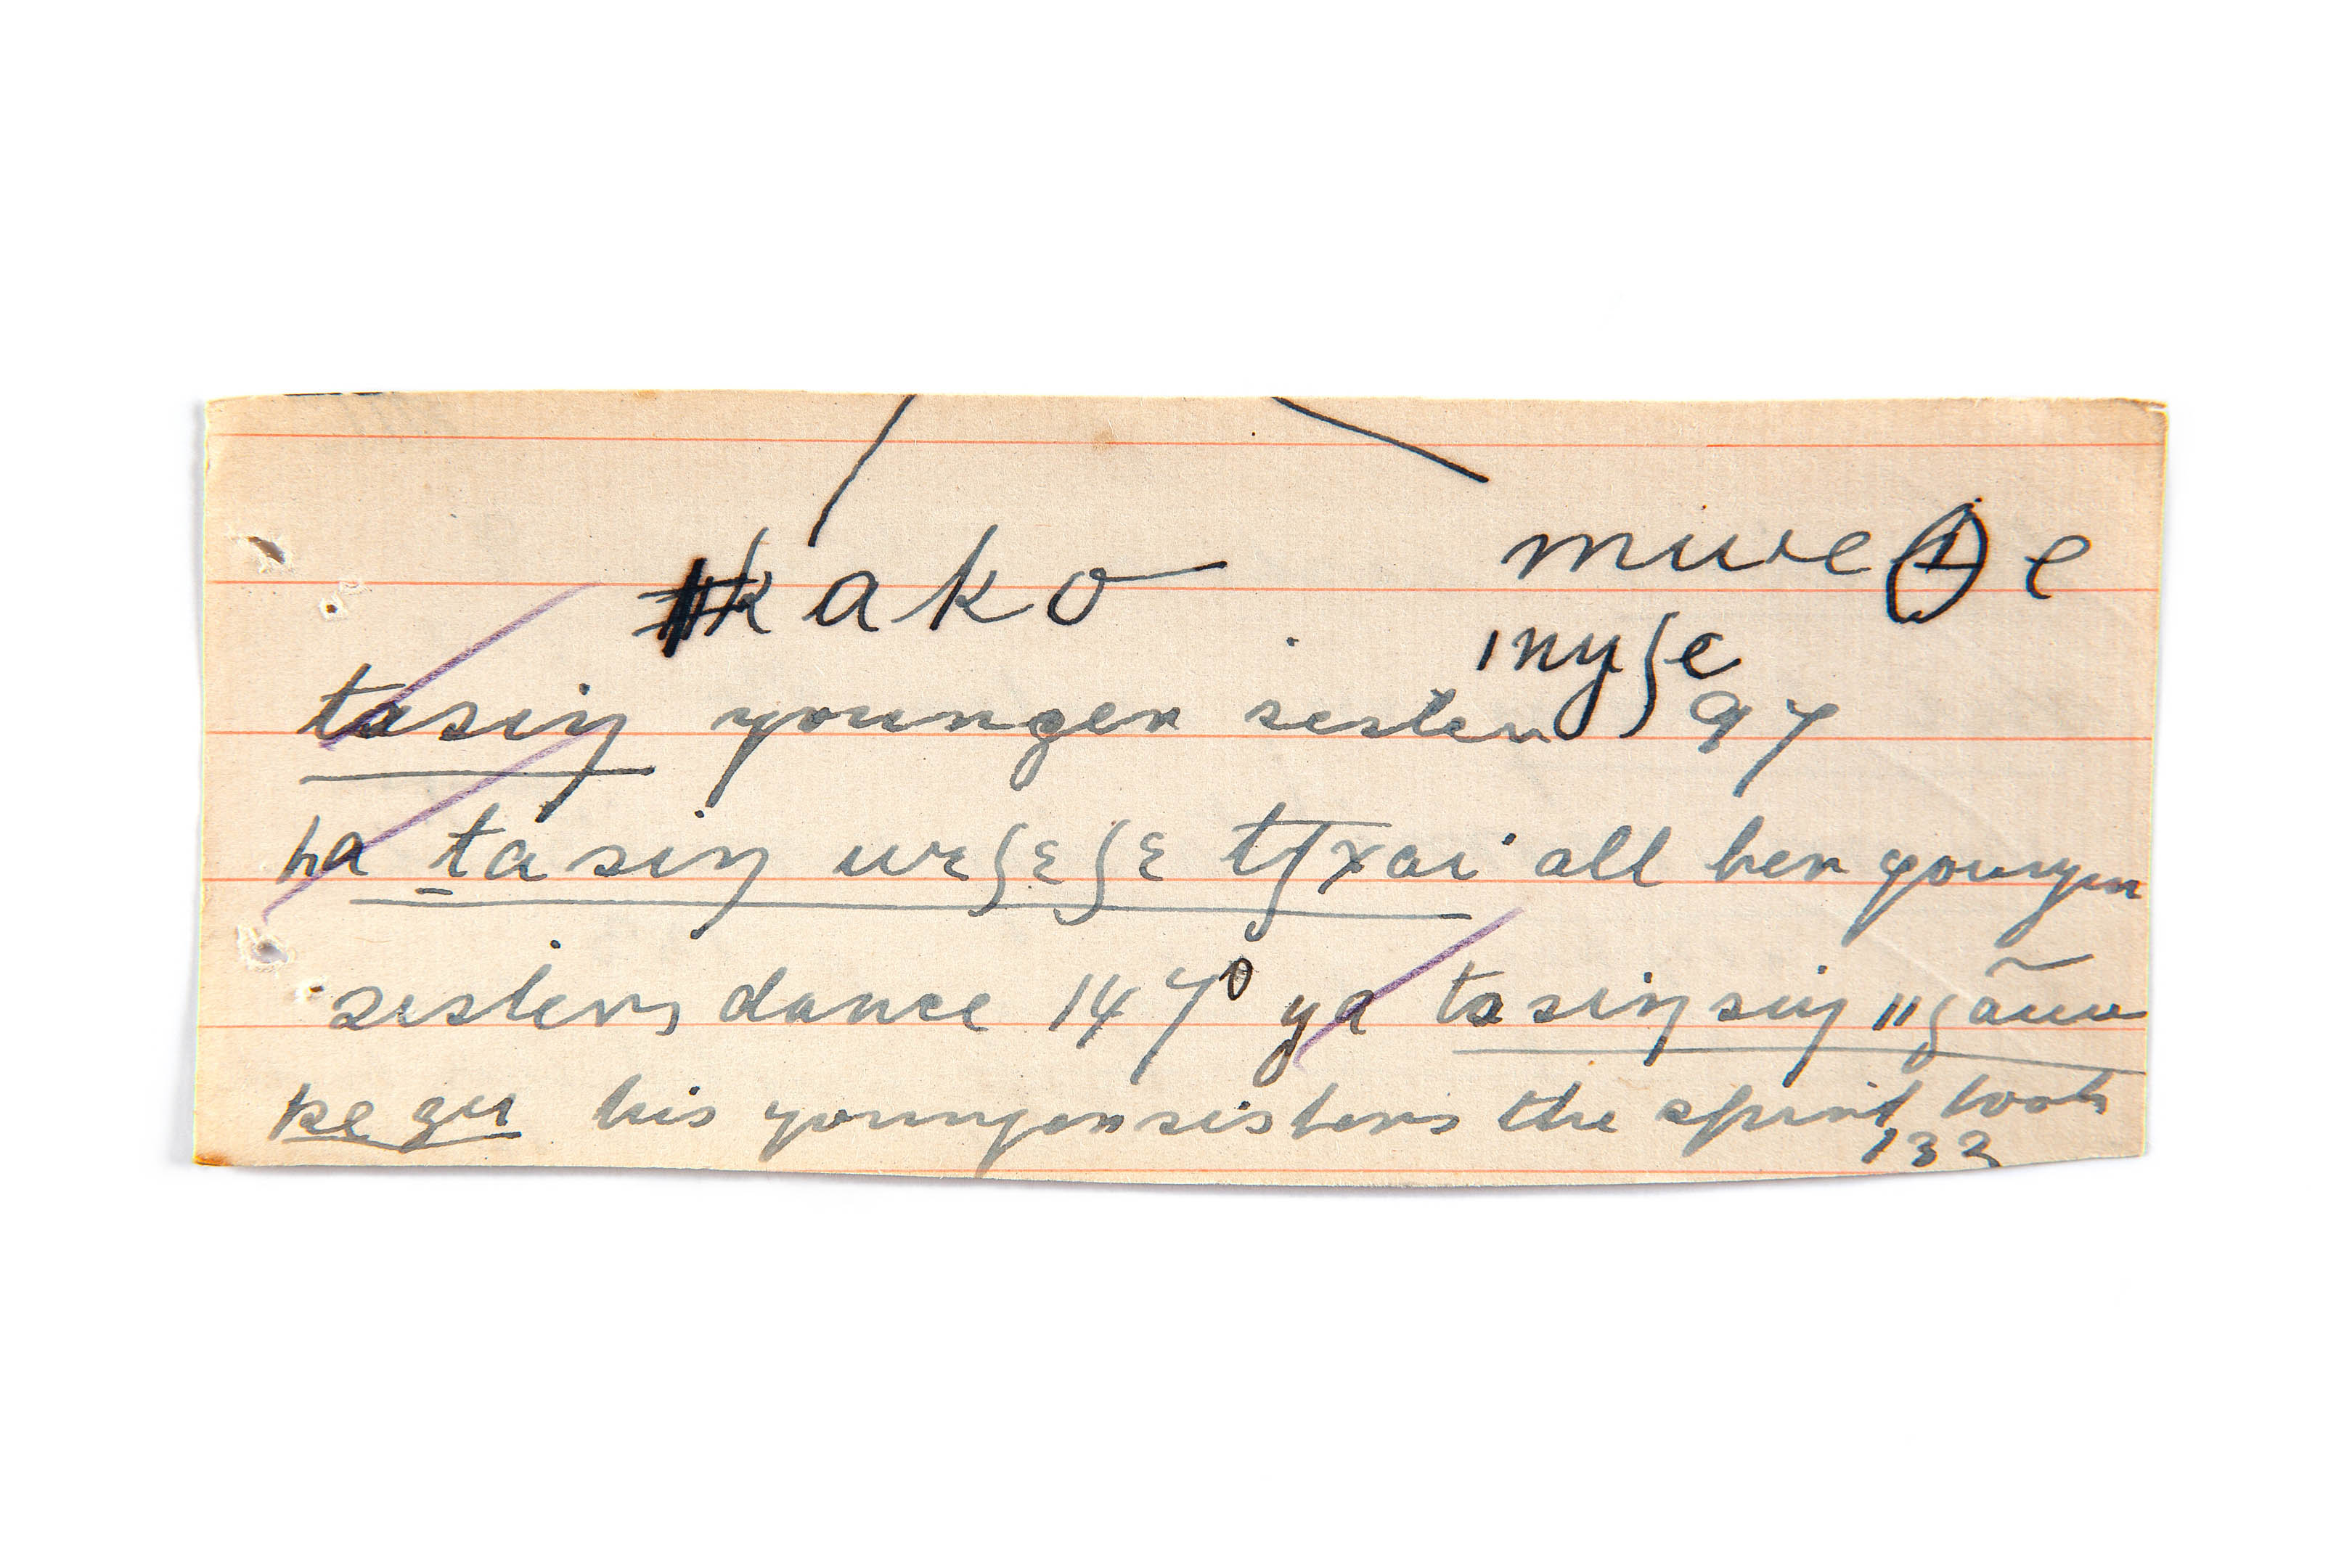 kako mweɵe
inyʃe
tasiŋ younger sister 97
ha tasiŋ wɛʃɛʃɛ tʃxai all her younger
sisters dance 147° ya tasiŋsiŋ
ke gu his younger sisters the spirit took
132